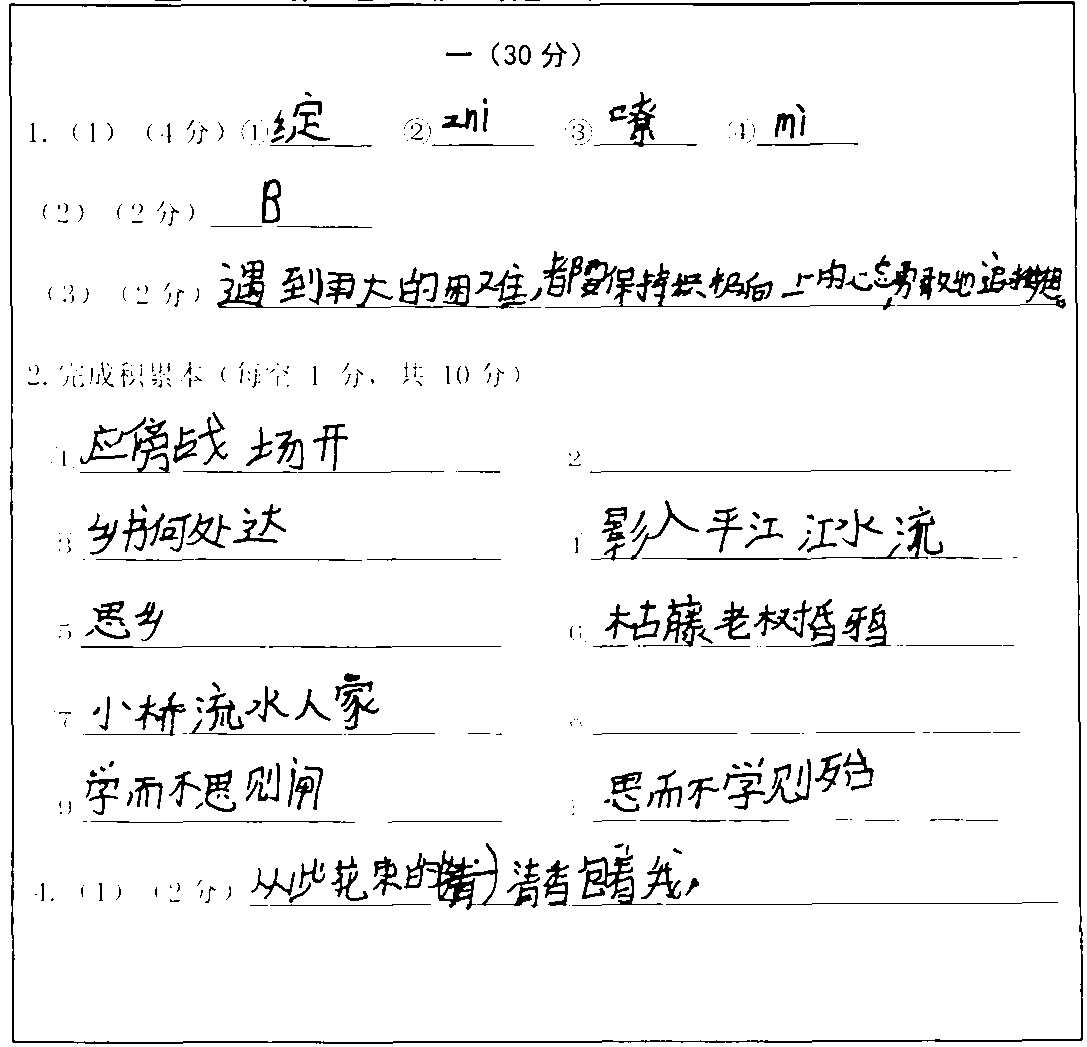 一（30分）
1.（1）（4分）①绽 ②zhi ③嘹 ④mì
（2）（2分）B
（3）（2分）遇到再大的困难，都要保持积极向上的心态，勇敢地追梦想。
2.完成积累本（每空1分，共10分）
1 应傍战场开 2
3 乡书何处达 4 影入平江江水流
5 思乡 6 枯藤老树昏鸦
7 小桥流水人家
9 学而不思则闸 思而不学则殆
4.（1）（2分）从此花束的清香包着我，